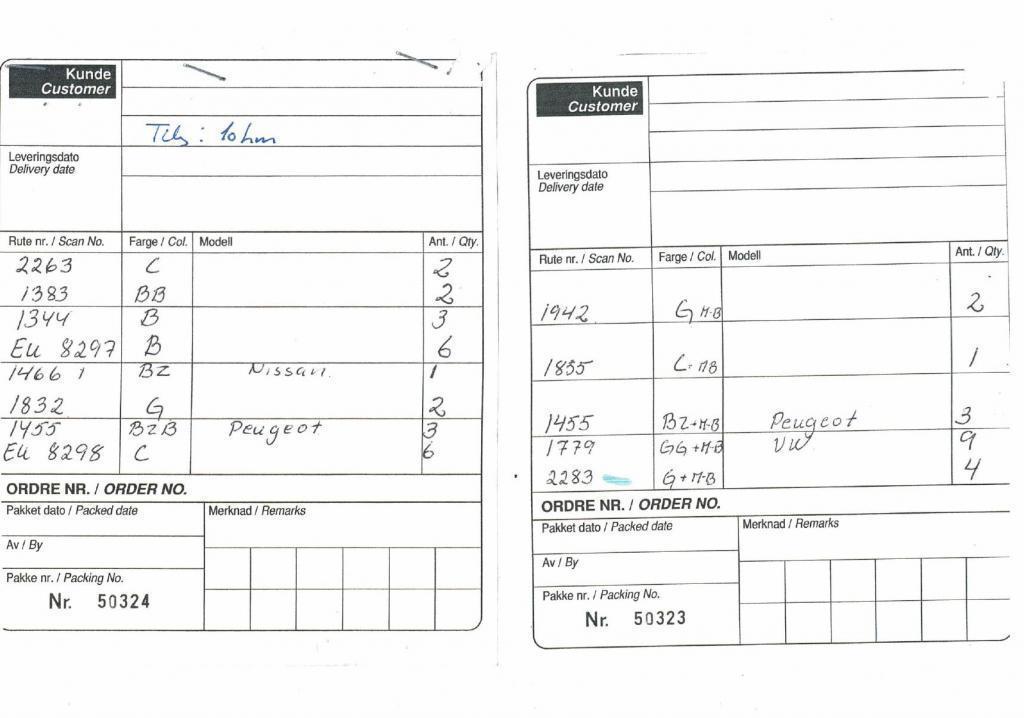 Kunde
Customer
10 hm
Leveringsdato
Delivery date
Rute nr. / Scan No. Farge / Col. Modell Ant. / Qty.
2263 C 2
1383 BB 2
1344 B 3
EU 8297 B 6
1466 1 BZ Nissan. 1
1832 G 2
1455 BZB Peugeot 3
EU 8298 C 6
ORDRE NR. / ORDER NO.
Pakket dato / Packed date Merknad / Remarks
Av / By
Pakke nr. / Packing No.
Nr. 50324
Kunde
Customer
Leveringsdato
Delivery date
Rute nr. / Scan No. Farge / Col. Modell Ant. / Qty.
1942 G M-B 2
1835 C- MB 1
1455 BZ+M-B Peugeot 3
1779 GG+M-B VW 9
2283 G+M-B 4
ORDRE NR. / ORDER NO.
Pakket dato / Packed date Merknad / Remarks
Av / By
Pakke nr. / Packing No.
Nr. 50323